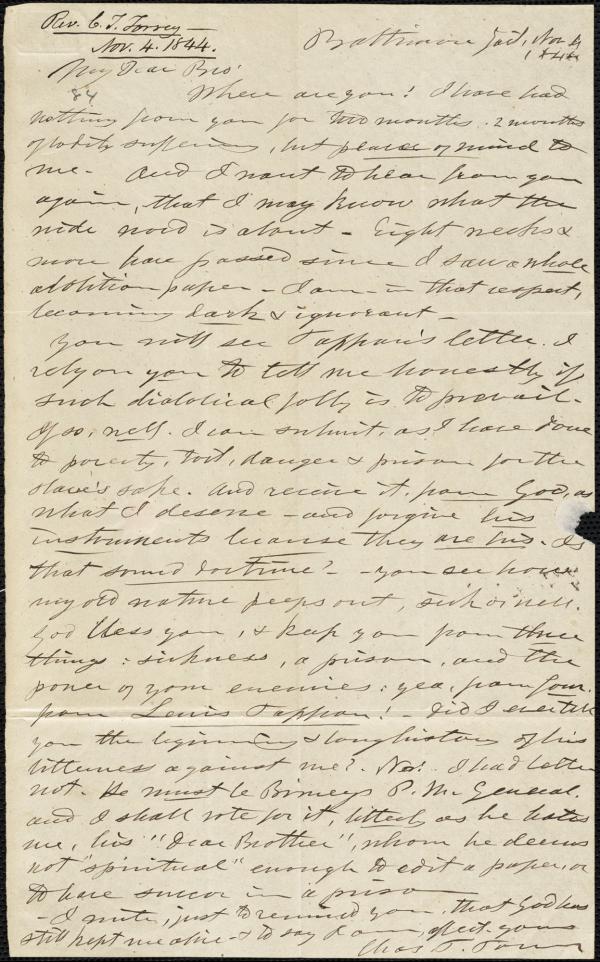 Rev. C. T. Torrey
Nov. 4. 1844.
Baltimore Jail, Nov 4
1844
My Dear Bro'
84
Where are you! I have had
nothing from you for two months. 2 months
of bodily suffering, but peace of mind to
me. And I want to hear from you
again, that I may know what the
wide world is about - Eight weeks &
more have passed since I saw a whole
abolition paper - I am - in that respect,
becoming dark & ignorant -
You will see Tappan's letter. I
rely on you to tell me honestly if
such diabolical folly is to prevail.
If so, well. I can submit, as I have done
to poverty, toil, danger & prison for the
slave's sake. And receive it, from God, as
what I deserve - and forgive his
instruments because they are his. Is
that sound doctrine? - you see how
my old nature peeps out, sick or well.
God bless you, & keep you from three
things: sickness, a prison, and the
power of your enemies: yea, from four.
from Lewis Tappan! - Did I ever tell
you the beginning & long history of his
bitterness against me? No! I had better
not. He must be Birney's P. M. General.
and I shall vote for it, bitterly as he hates
me, his "Dear Brother", whom he deems
not "spiritual" enough to edit a paper, or
to have succor in a prison
- I write, just to remind you, that God has
still kept me alive - & to say I am, affect. yours
Chas T. Torrey